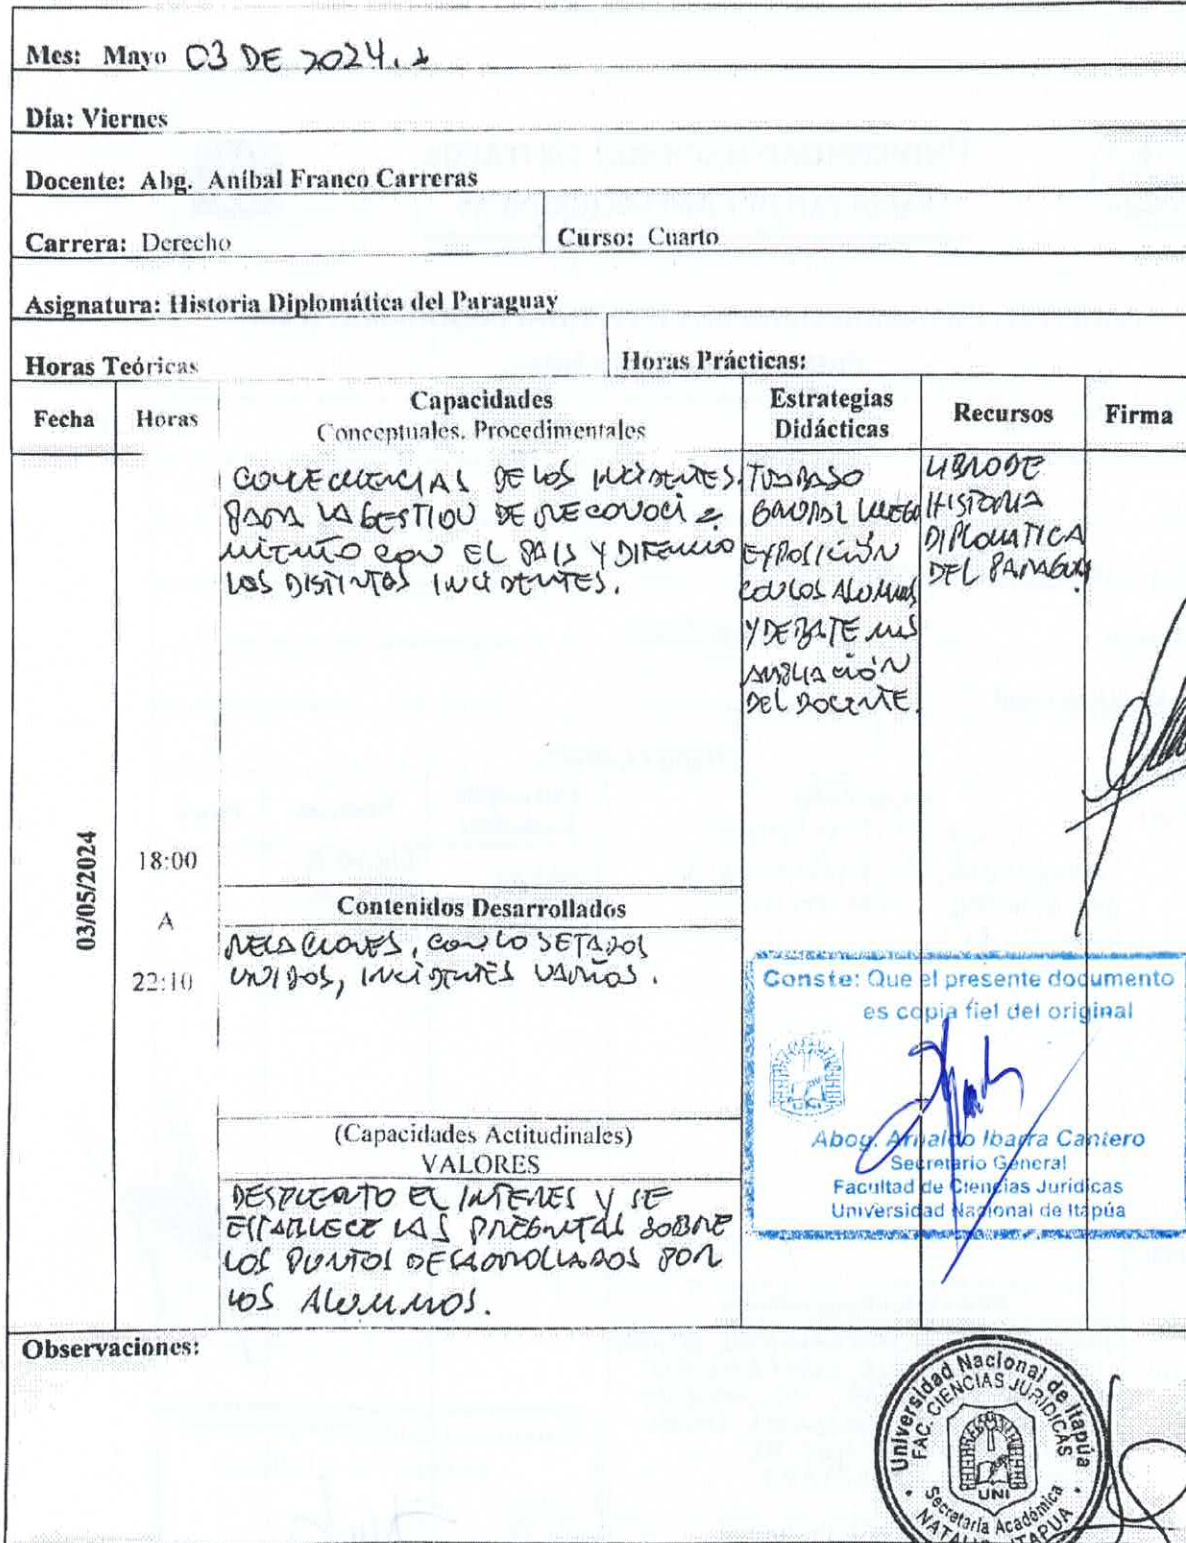 Mes: Mayo 03 DE 2024.
Día: Viernes
Docente: Abg. Aníbal Franco Carreras
Carrera: Derecho
Curso: Cuarto
Asignatura: Historia Diplomática del Paraguay
Horas Teóricas
Horas Prácticas:
Fecha
Horas
Capacidades
Conceptuales, Procedimentales
Estrategias
Didácticas
Recursos
Firma
03/05/2024
18:00
A
22:10
DE LOS INCIDENTES
PARA LA GESTION DE RECONOCI
MIENTO CON EL PAIS Y DIFENCIO
LOS DISTINTOS INCIDENTES.
TRABAJO
GRUPAL LUEGO
EXPOSICIÓN
CON LOS ALUMNOS
Y DEBATE MAS
AMPLIACIÓN
DEL DOCENTE.
LIBRO DE
HISTORIA
DIPLOMATICA
DEL PARAGUAY
Contenidos Desarrollados
RELACIONES, CON LO SETADOS
UNIDOS, INCIDENTES VARIOS.
(Capacidades Actitudinales)
VALORES
DESPIERTO EL INTERES Y SE
ESTABLECE LAS PREGUNTAS SOBRE
LOS PUNTOS DESARROLLADOS POR
LOS ALUMNOS.
Conste: Que el presente documento
es copia fiel del original
UNI
Abog. Arnaldo Ibarra Cantero
Secretario General
Facultad de Ciencias Jurídicas
Universidad Nacional de Itapúa
Observaciones:
Universidad Nacional de Itapúa
FAC. CIENCIAS JURIDICAS
UNI
Secretaría Académica
NATALIO - ITAPUA